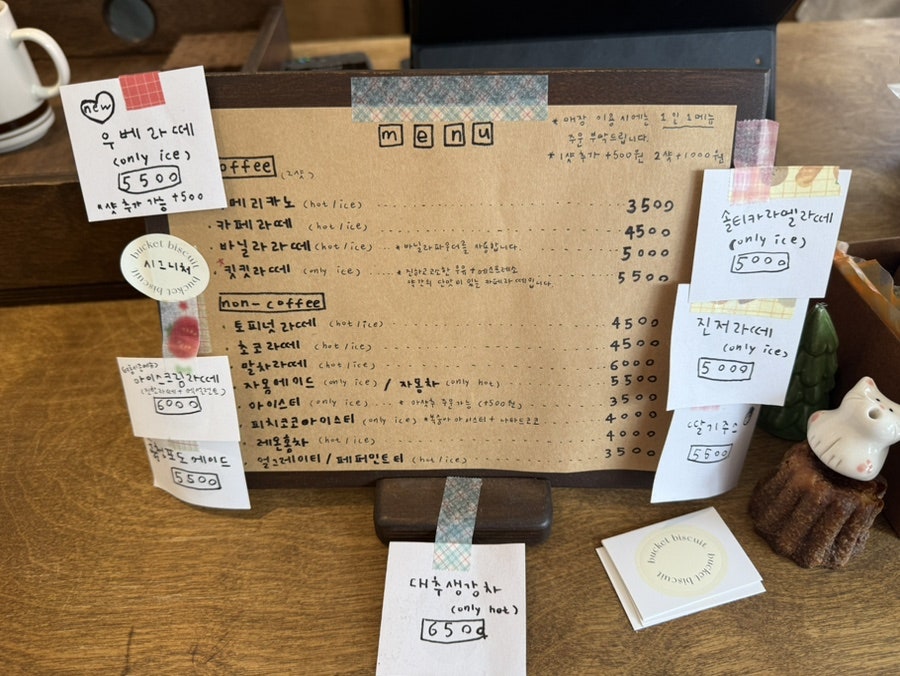 new
우베라떼
(only ice)
5500
*샷 추가 가능 +500
bucket biscuit
시그니처
bucket biscuit
아이스크림라떼
6000
포도에이드
5500
menu
* 매장 이용시에는 1인 1메뉴
주문 부탁드립니다.
* 1샷 추가 +500원 2샷 +1000원
offee (2샷)
메리카노 (hot/ice) 3500
카페라떼 (hot/ice) 4500
바닐라라떼 (hot/ice) *바닐라파우더를 사용합니다. 5000
*킷킷라떼 (only ice) *진하고 고소한 우유+에스프레소 5500
약간의 단맛이 있는 카페라떼입니다.
non-coffee
토피넛라떼 (hot/ice) 4500
초코라떼 (hot/ice) 4500
말차라떼 (hot/ice) 6000
자몽에이드 (only ice) / 자몽차 (only hot) 5500
아이스티 (only ice) *아샷추 주문가능 (+500원) 3500
피치코코아이스티 (only ice) *복숭아 아이스티+나타드코코 4000
레몬홍차 (hot/ice) 4000
얼그레이티 / 페퍼민트티 (hot/ice) 3500
솔티카라멜라떼
(only ice)
5000
진저라떼
(only ice)
5000
딸기주스
5500
대추생강차
(only hot)
6500
bucket biscuit
bucket biscuit